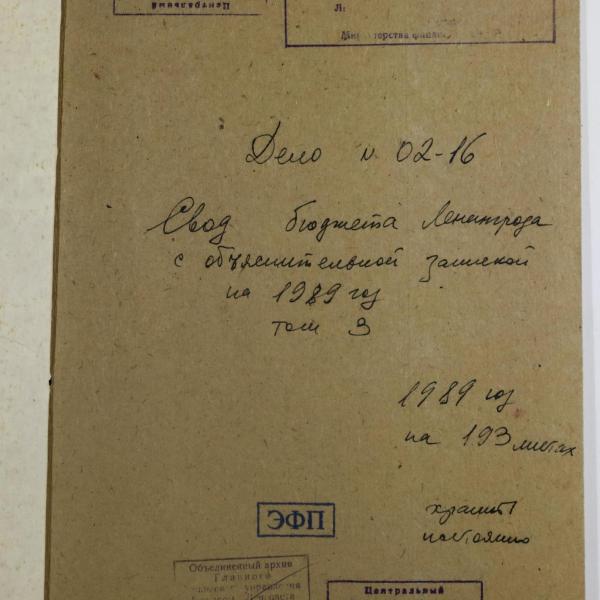 Центральный
Л:
Министерства финан
Дело N 02-16
Свод бюджета Ленинграда
с объяснительной запиской
на 1989 год
том 3
1989 год
на 193 листах
хранить
постоянно
ЭФП
Объединенный архив
Главного
управления
Центральный